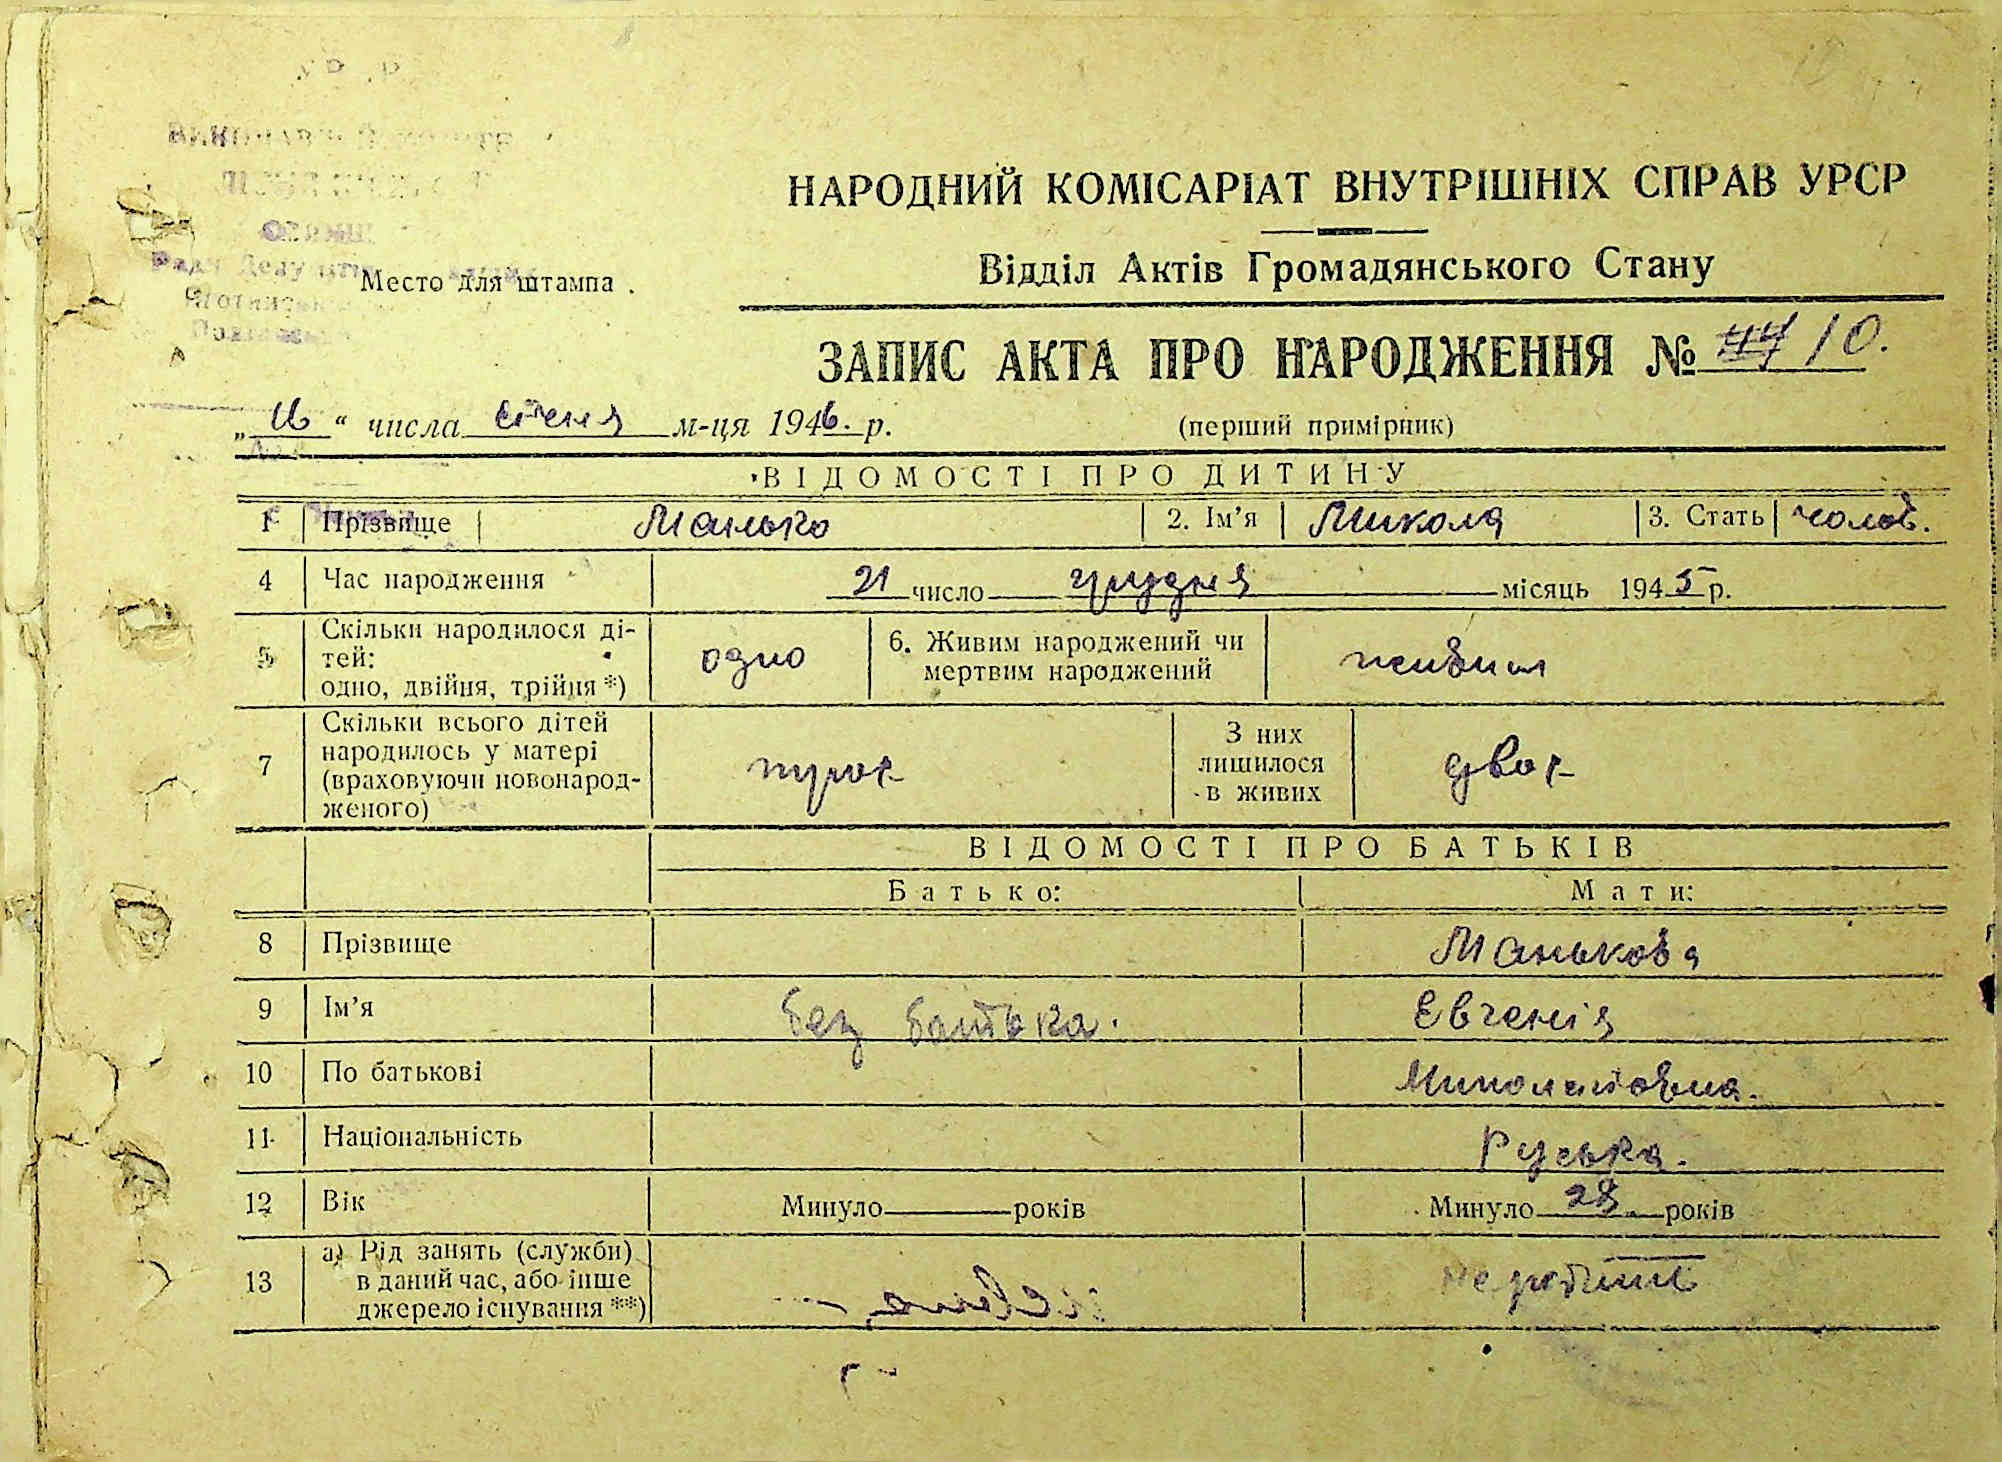 НАРОДНИЙ КОМІСАРІАТ ВНУТРІШНІХ СПРАВ УРСР
Відділ Актів Громадянського Стану
Место для штампа
ЗАПИС АКТА ПРО НАРОДЖЕННЯ № 10.
„16“ числа січня м-ця 1946. р.
(перший примірник)
ВІДОМОСТІ ПРО ДИТИНУ
1 Прізвище Манько 2. Ім’я Микола 3. Стать чолов.
4 Час народження 21 число грудня місяць 1945 р.
5 Скільки народилося ді-
тей:
одно, двійня, трійня*) одно 6. Живим народжений чи
мертвим народжений живим
7 Скільки всього дітей
народилось у матері
(враховуючи новонарод-
женого) трох З них
лишилося
в живих двох
ВІДОМОСТІ ПРО БАТЬКІВ
Батько: Мати:
8 Прізвище Манькова
9 Ім’я без батька. Евгенія
10 По батькові
11 Національність Руська.
12 Вік Минуло років Минуло 28 років
13 а) Рід занять (служби)
в даний час, або інше
джерело існування**) не робить